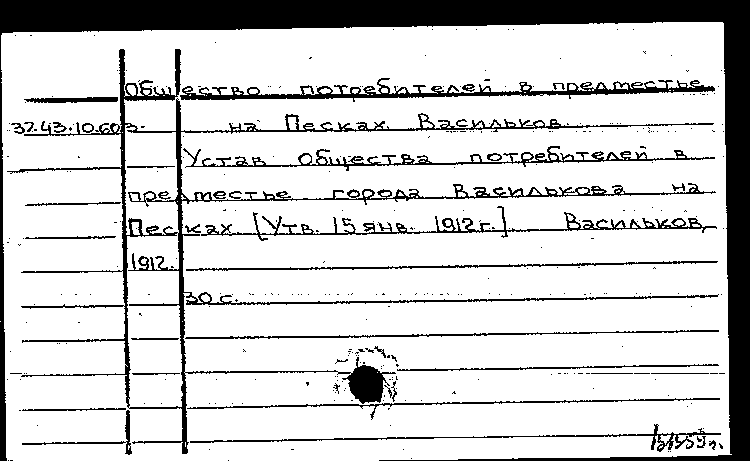 Общество потребителей в предместье
32.43.10.603. на Песках. Васильков.
Устав Общества потребителей в
предместье города Василькова на
Песках. [Утв. 15 янв. 1912 г.] Васильков,
1912.
30 с.